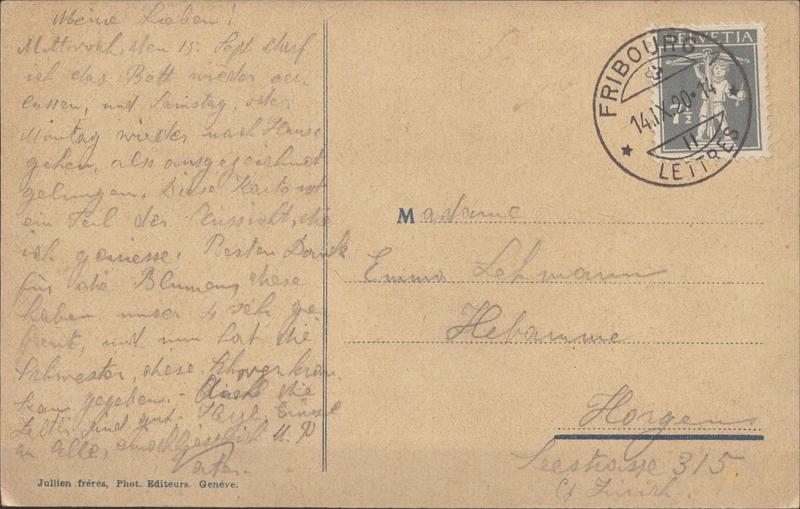 Meine Lieben!
Mittwoch, den 15. Sept darf
ich das Bett wieder ver
lassen, und Samstag, oder
Montag wieder nach Hause
gehen, also ausgezeichnet
gelungen. Diese Karte ist
ein Teil der Aussicht, die
ich geniesse. Besten Dank
für die Blumen, diese
haben unser 4 sehr ge
freut, und nun hat die
Schwester, diese
gegeben. - die
und gut. Grüsse
an Alle,
Jullien fréres, Phot. Editeurs. Genéve.
HELVETIA
7½
FRIBOURG
14.IX.20-14
II
LETTRES
Madame
Emma Lehmann
Hebamme
Horgen
Seestrasse 315
Ct Zürich.